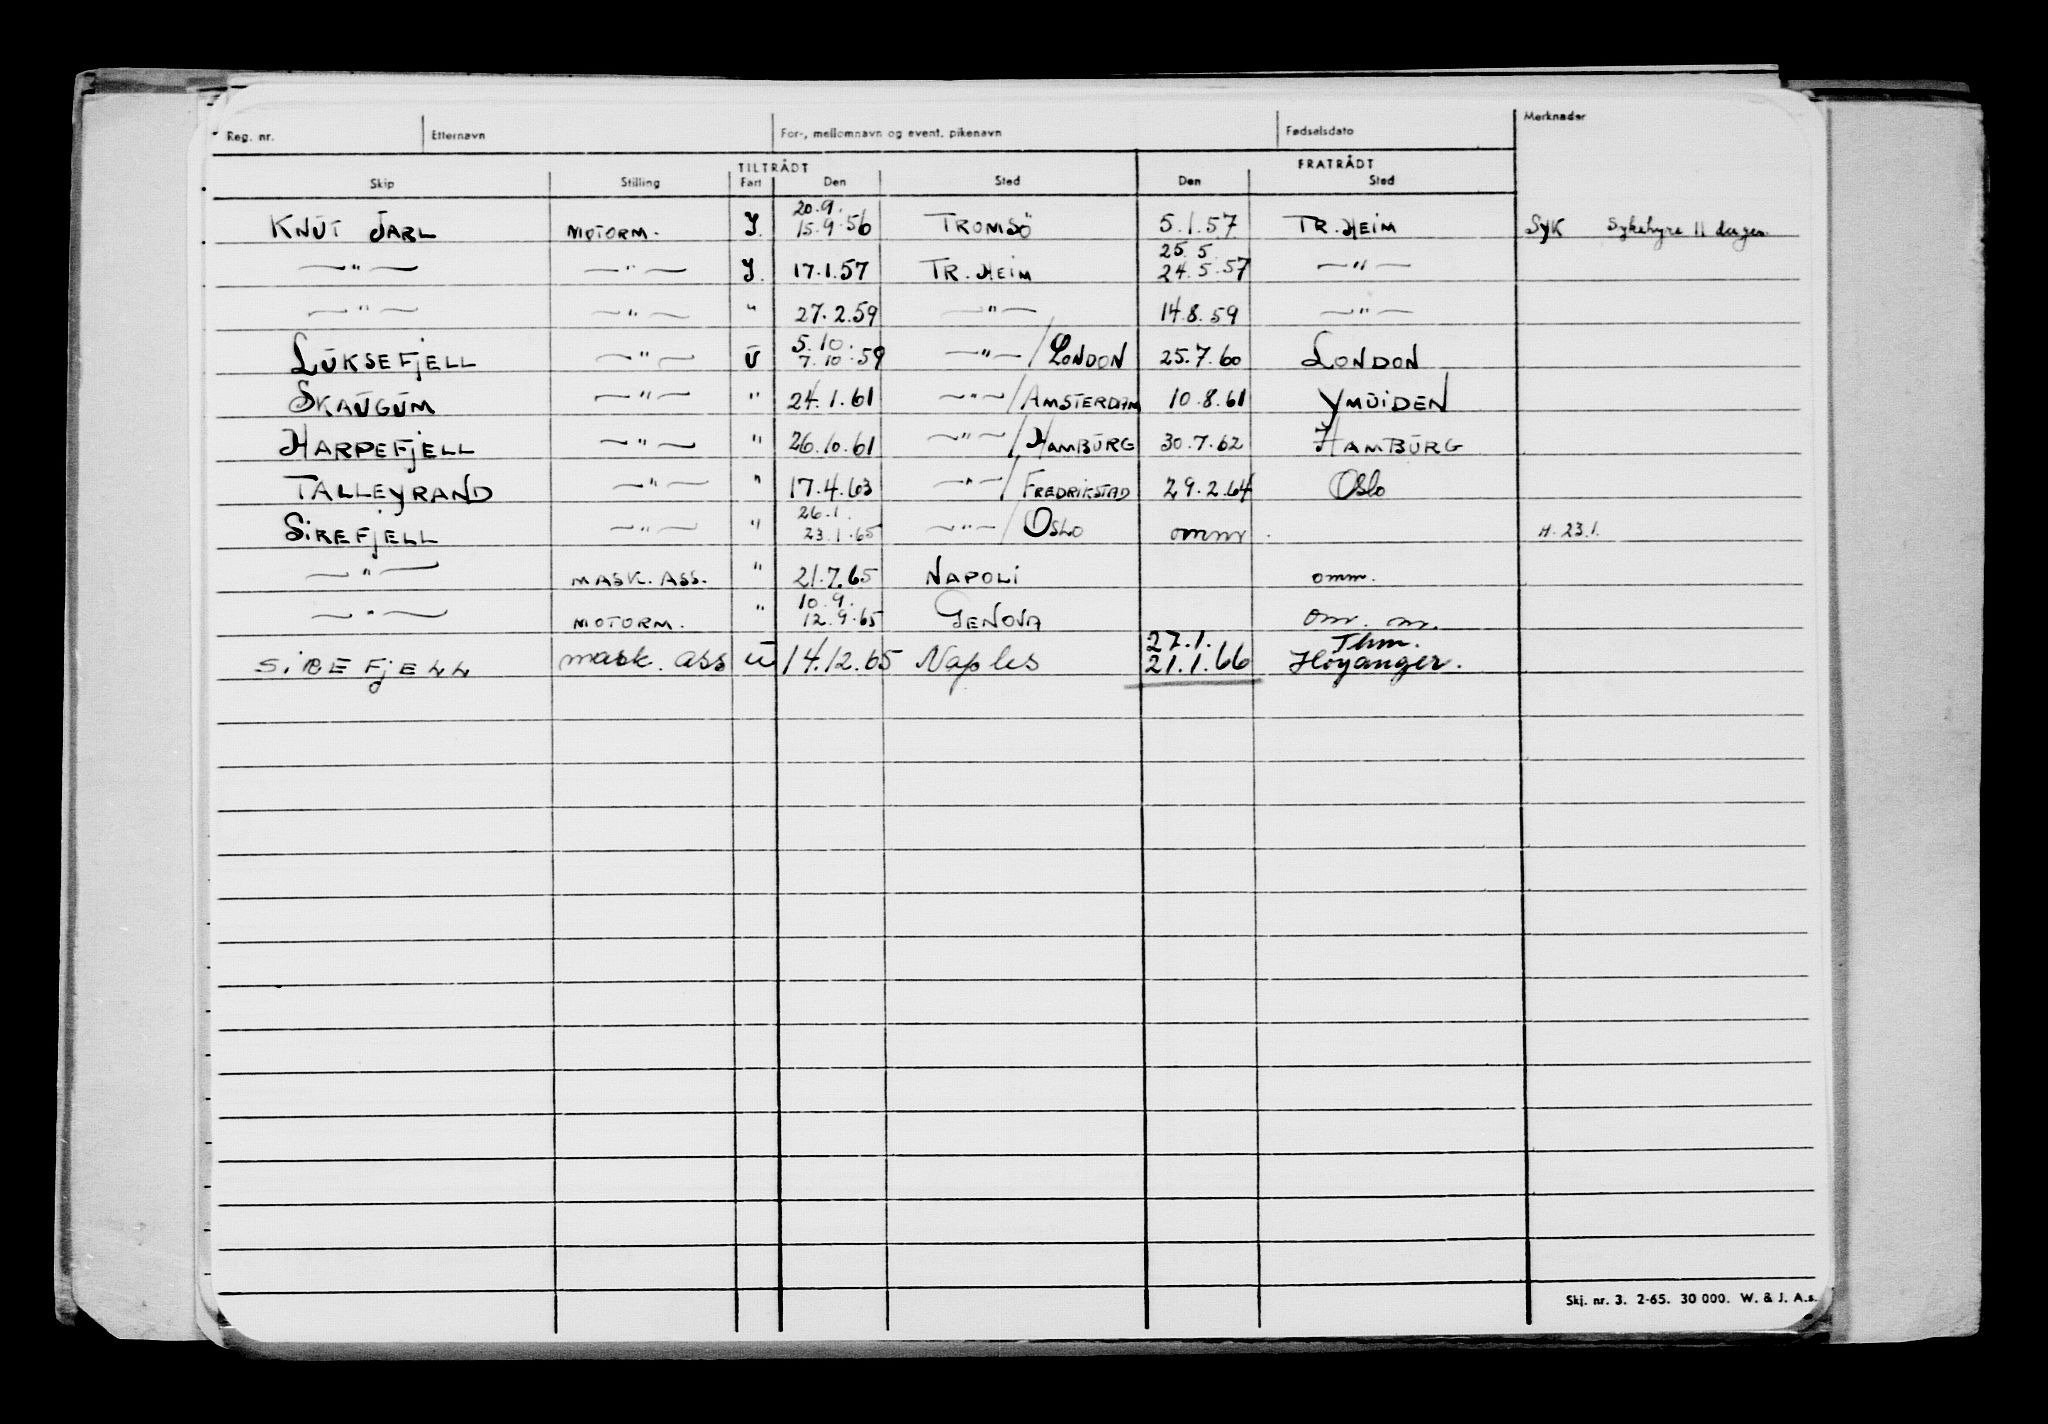 Reg. nr. Etternavn For-, mellomnavn og event. pikenavn Fødselsdato Merknader
TILTRÅDT FRATRÅDT
Skip Stilling Fart Den Sted Den Sted
20.9.
KNUT JARL MOTORM. J. 15.9.56 TROMSÖ 5.1.57 TR.HEIM SYK Sykehyre 11 dager
25.5
—"— —"— J. 17.1.57 TR.HEIM 24.5.57 —"—
—"— —"— " 27.2.59 —"— 14.8.59 —"—
5.10.
LUKSEFJELL —"— U 7.10.59 —"—/LONDON 25.7.60 LONDON
SKAUGUM —"— " 24.1.61 —"—/AMSTERDAM 10.8.61 YMUIDEN
HARPEFJELL —"— " 26.10.61 —"—/HAMBURG 30.7.62 HAMBURG
TALLEYRAND —"— " 17.4.63 —"—/FREDRIKSTAD 29.2.64 OSlo
26.1.
SIREFJELL —"— " 23.1.65 —"—/OSLO ommr. H. 23.1.
—"— MASK. ASS. " 21.7.65 NAPOLI omm.
10.9.
—"— MOTORM. " 12.9.65 GENOVA om. m.
27.1. Thm.
SIREFJELL mask. ass U 14.12.65 Naples 21.1.66 Höyanger.
Skj. nr. 3. 2-65. 30 000. W. & J. A.s.